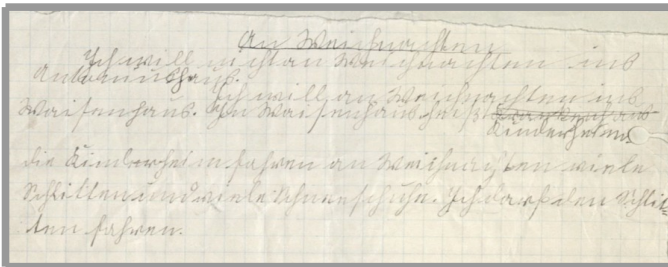 An Weihnachten
Ich will nicht an Weihnachten ins
Ich will an Weihnachten ins
Waisenhaus. Im Waisenhaus
Kinderheim
die Kinderheim fahren an Weihnachten viele
Schlitten und viele Schneeschuhe. Ich darf den Schlit-
ten fahren.